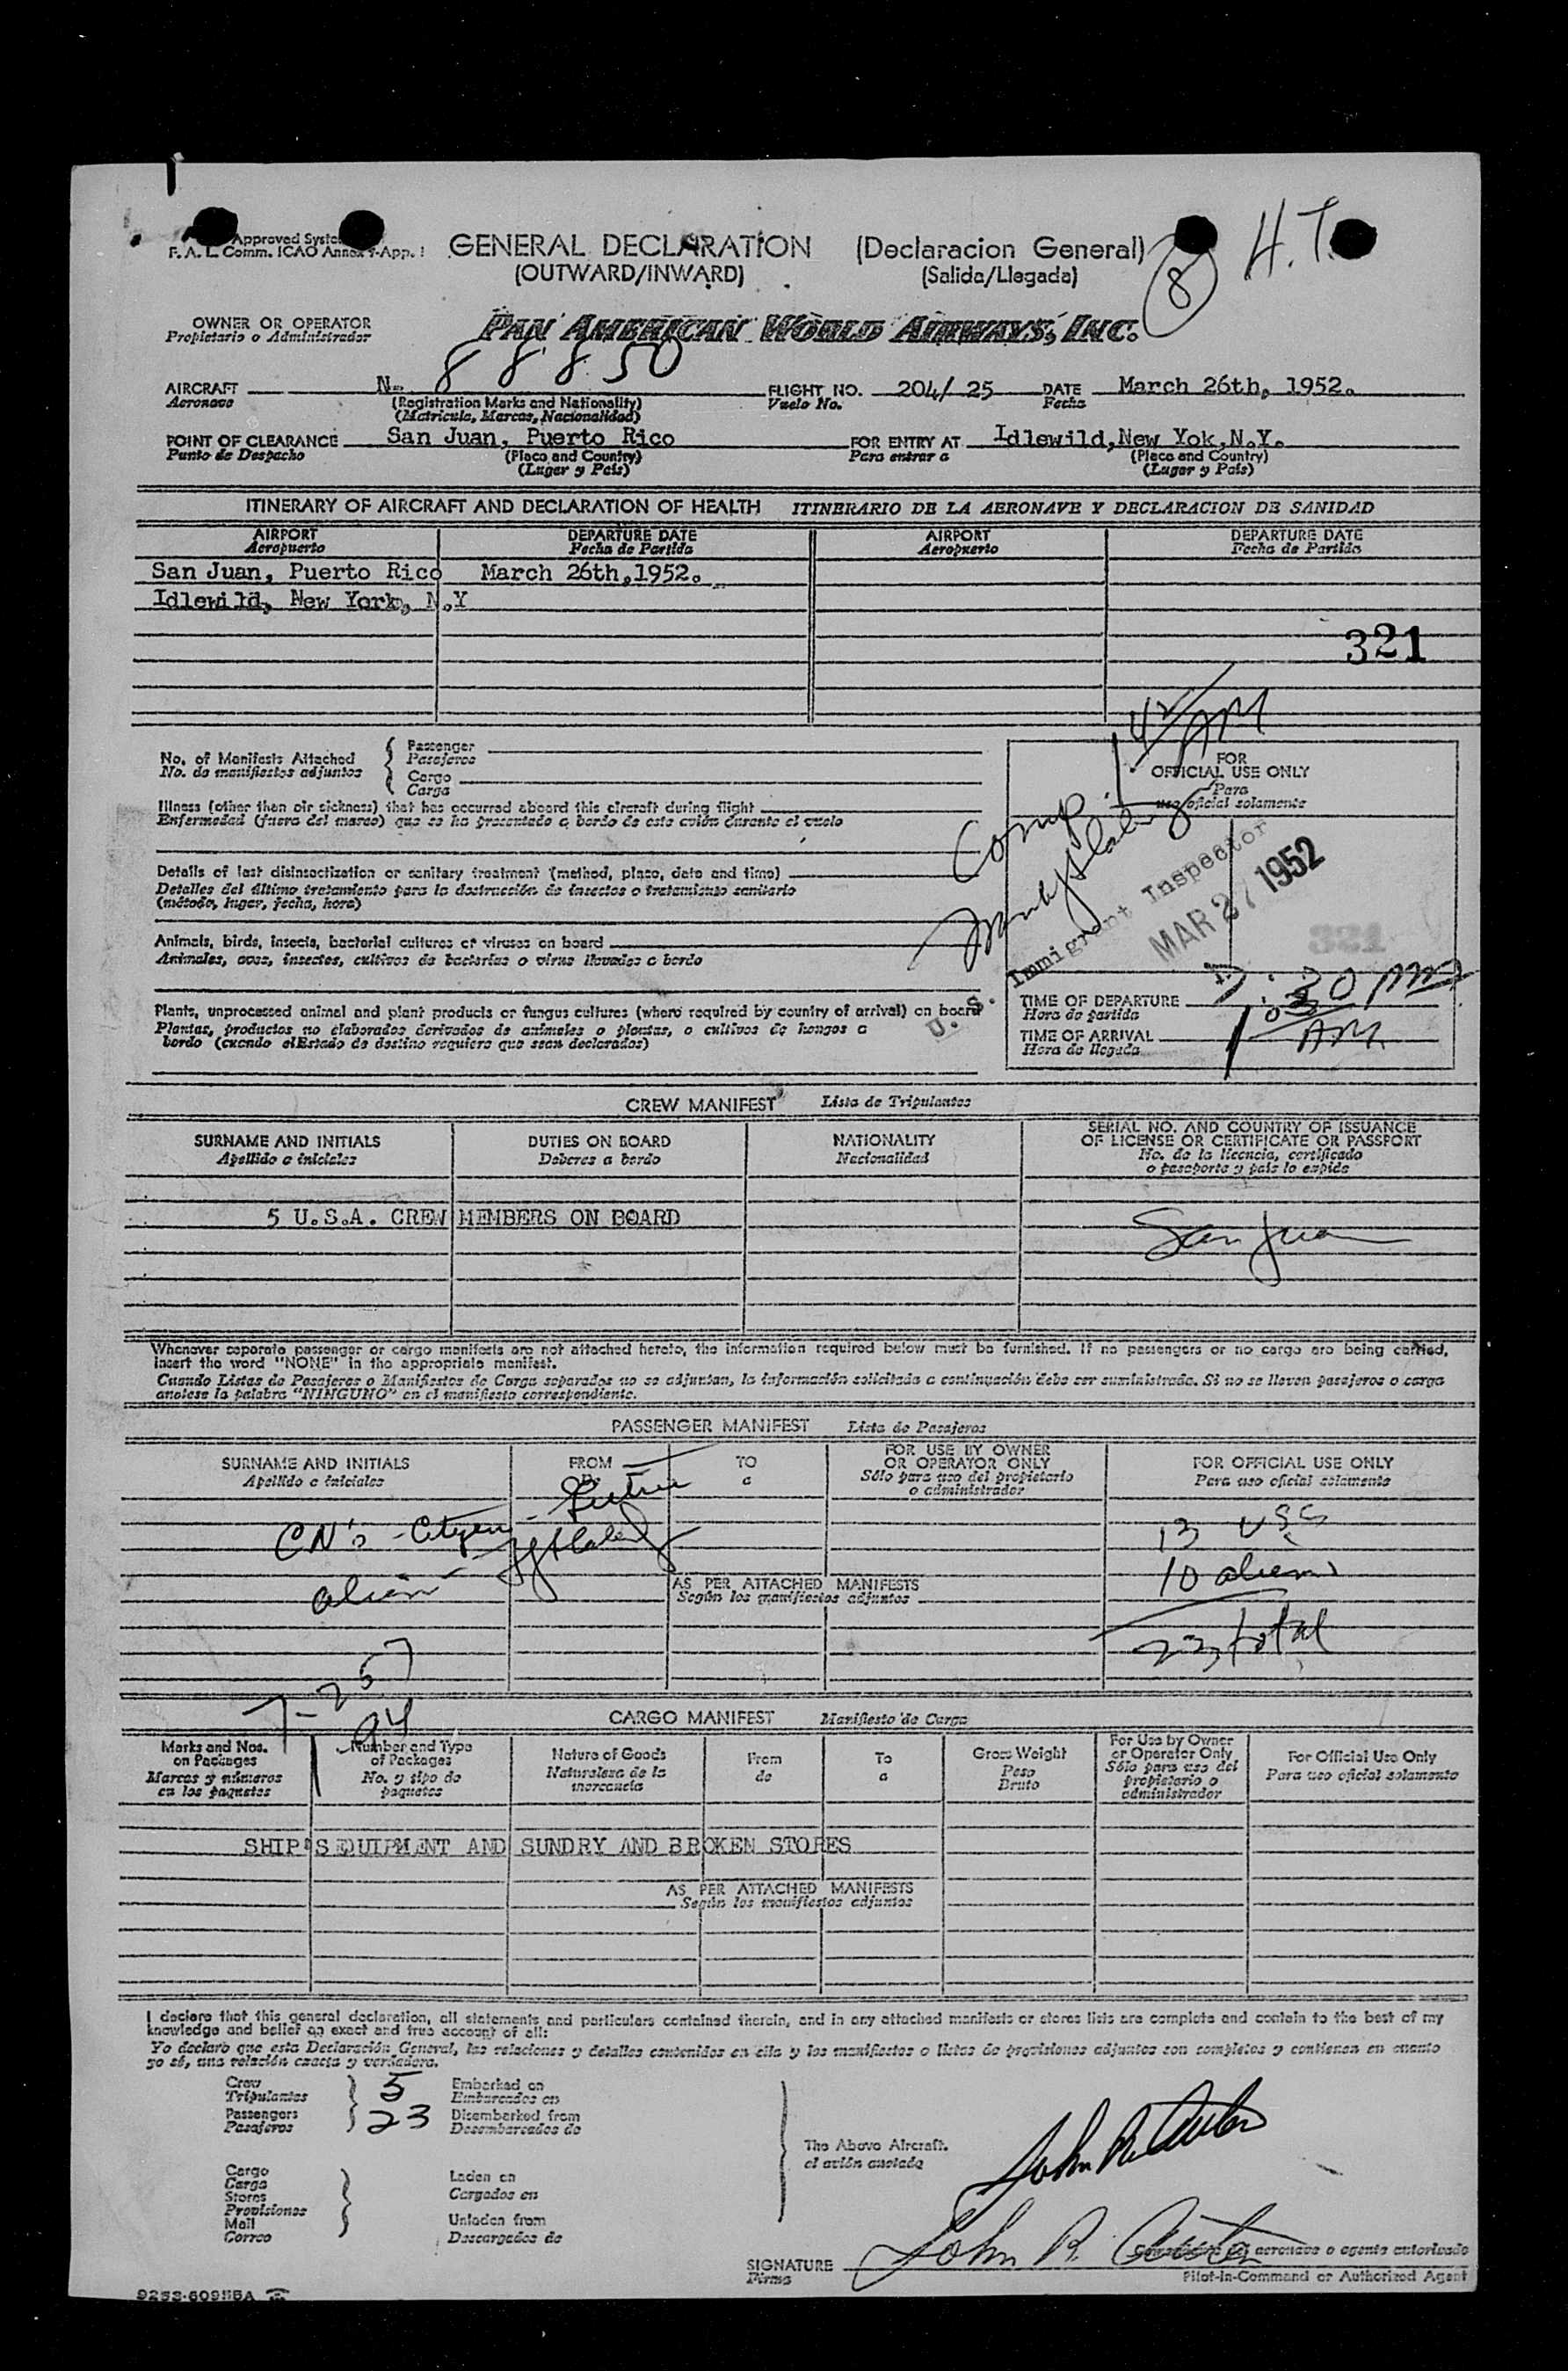 Approved System
F. A. L. Comm. ICAO Annex 9-App. I
GENERAL DECLARATION (Declaracion General)
(OUTWARD/INWARD) (Salida/Llegada)
8 H.T.
OWNER OR OPERATOR
Propietario o Administrador
PAN AMERICAN WORLD AIRWAYS, INC.
AIRCRAFT N- 88850 FLIGHT NO. 204/ 25 DATE March 26th, 1952.
Aeronave (Registration Marks and Nationality) Vuelo No. Fecha
(Matricula, Marcas, Nacionalidad)
POINT OF CLEARANCE San Juan, Puerto Rico FOR ENTRY AT Idlewild,New Yok,N.Y.
Punto de Despacho (Place and Country) Para entrar a (Place and Country)
(Lugar y País) (Lugar y País)
ITINERARY OF AIRCRAFT AND DECLARATION OF HEALTH ITINERARIO DE LA AERONAVE Y DECLARACION DE SANIDAD
AIRPORT DEPARTURE DATE AIRPORT DEPARTURE DATE
Aeropuerto Fecha de Partida Aeropuerto Fecha de Partida
San Juan, Puerto Rico March 26th,1952.
Idlewild, New York, N.Y
321
No. of Manifests Attached
No. de manifiestos adjuntos
Passenger
Pasajeros
Cargo
Carga
Illness (other than air sickness) that has occurred aboard this aircraft during flight
Enfermedad (fuera del mareo) que se ha presentado a bordo de este avión durante el vuelo
Details of last disinsectization or sanitary treatment (method, place, date and time)
Detalles del último tratamiento para la destrucción de insectos o tratamiento sanitario
(método, lugar, fecha, hora)
Animals, birds, insects, bacterial cultures or viruses on board
Animales, aves, insectos, cultivos de bacterias o virus llevados a bordo
Plants, unprocessed animal and plant products or fungus cultures (where required by country of arrival) on board
Plantas, productos no elaborados derivados de animales o plantas, o cultivos de hongos a
bordo (cuando el Estado de destino requiera que sean declarados)
Comp. 1:42 AM
FOR
OFFICIAL USE ONLY
Para
uso oficial solamente
U. S. Immigrant Inspector
MAR 27 1952
321
TIME OF DEPARTURE 7:30 PM
Hora de partida
TIME OF ARRIVAL 1:03 AM
Hora de llegada
CREW MANIFEST Lista de Tripulantes
SURNAME AND INITIALS DUTIES ON BOARD NATIONALITY SERIAL NO. AND COUNTRY OF ISSUANCE
OF LICENSE OR CERTIFICATE OR PASSPORT
Apellido e iniciales Deberes a bordo Nacionalidad No. de la licencia, certificado
o pasaporte y país lo expide
5 U.S.A. CREW MEMBERS ON BOARD
San Juan
Whenever separate passenger or cargo manifests are not attached hereto, the information required below must be furnished. If no passengers or no cargo are being carried,
insert the word "NONE" in the appropriate manifest.
Cuando Listas de Pasajeros o Manifiestos de Carga separados no se adjuntan, la información solicitada a continuación debe ser suministrada. Si no se lleven pasajeros o carga
anotese la palabra "NINGUNO" en el manifiesto correspondiente.
PASSENGER MANIFEST Lista de Pasajeros
SURNAME AND INITIALS FROM TO FOR USE BY OWNER
OR OPERATOR ONLY FOR OFFICIAL USE ONLY
Apellido e iniciales De a Sólo para uso del propietario
o administrador Para uso oficial solamente
CN's - Citizen -
13 USC
alien
10 aliens
AS PER ATTACHED MANIFESTS
Según los manifiestos adjuntos
23 total
7-257
94
CARGO MANIFEST Manifiesto de Carga
Marks and Nos.
on Packages
Marcas y números
en los paquetes
Number and Type
of Packages
No. y tipo de
paquetes
Nature of Goods
Naturaleza de la
mercancía
From
de
To
a
Gross Weight
Peso
Bruto
For Use by Owner
or Operator Only
Sólo para uso del
propietario o
administrador
For Official Use Only
Para uso oficial solamente
SHIP'S EQUIPMENT AND SUNDRY AND BROKEN STORES
AS PER ATTACHED MANIFESTS
Según los manifiestos adjuntos
I declare that this general declaration, all statements and particulars contained therein, and in any attached manifests or stores lists are complete and contain to the best of my
knowledge and belief an exact and true account of all:
Yo declaro que esta Declaración General, las relaciones y detalles contenidos en ella y los manifiestos o listas de provisiones adjuntos son completos y contienen en cuanto
yo sé, una relación exacta y verdadera.
Crew 5 Embarked on
Tripulantes Embarcados en
Passengers 23 Disembarked from
Pasajeros Desembarcados de
The Above Aircraft.
el avión anotado
Cargo
Carga
Stores
Provisiones
Mail
Correo
Laden on
Cargados en
Unladen from
Descargados de
SIGNATURE John R.
Firma
aeronave o agente autorizado
Pilot-in-Command or Authorized Agent